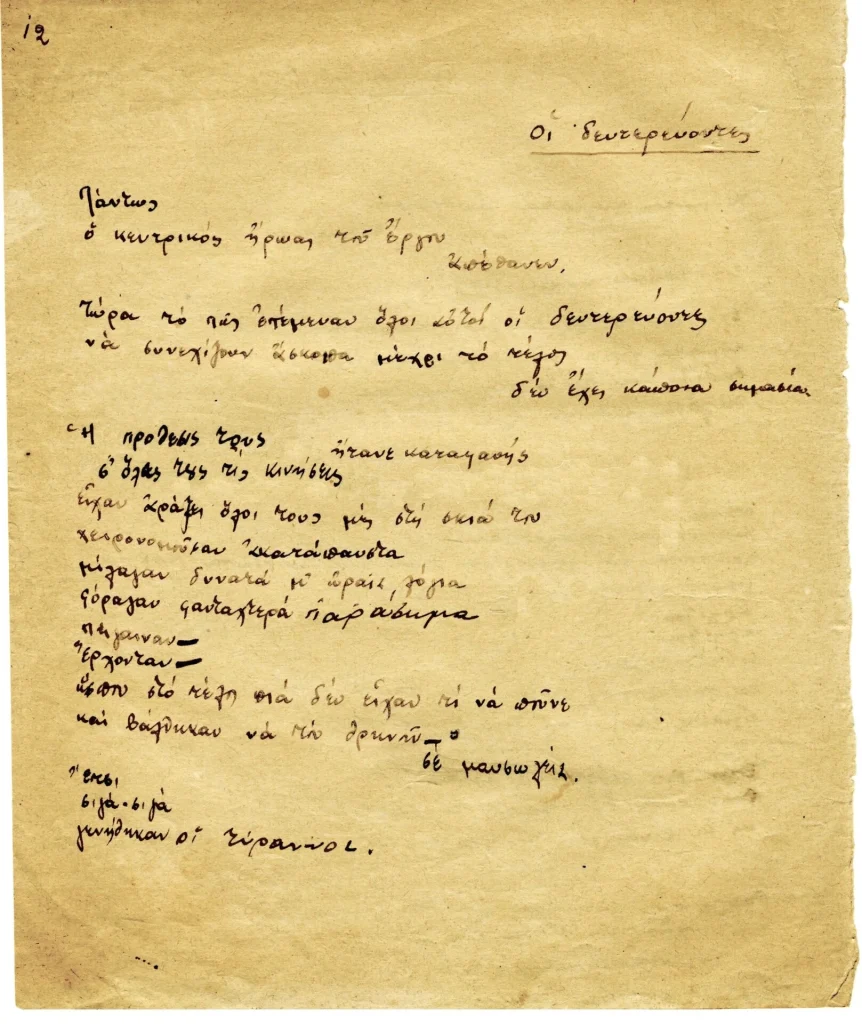 12
Οἱ δευτερεύοντες
Πάντως
ὁ κεντρικός ἥρωας τοῦ ἔργου
ἀπέθανεν.
Τώρα τό πῶς ἐπέμεναν ὅλοι αὐτοί οἱ δευτερεύοντες
νά συνεχίζουν ἄσκοπα μέχρι τό τέλος
δέν ἔχει κάποια σημασία
Ἡ πρόθεσίς τους
ἤτανε καταφανής
σ' ὅλες τους τίς κινήσεις
εἶχαν ἀράξει ὅλοι τους μές στή σκιά του
χειρονομοῦσαν ἀκατάπαυστα
μίλαγαν δυνατά μ' ὡραῖα λόγια
φόραγαν φανταχτερά παράσημα
πήγαιναν –
ἔρχονταν –
ὥσπου στό τέλος πιά δέν εἶχαν τί νά ποῦνε
καί βάλθηκαν νά τόν θρηνοῦν
σέ μαυσωλεῖα.
Ἔτσι
σιγά-σιγά
γεννήθηκαν οἱ τύραννοι.